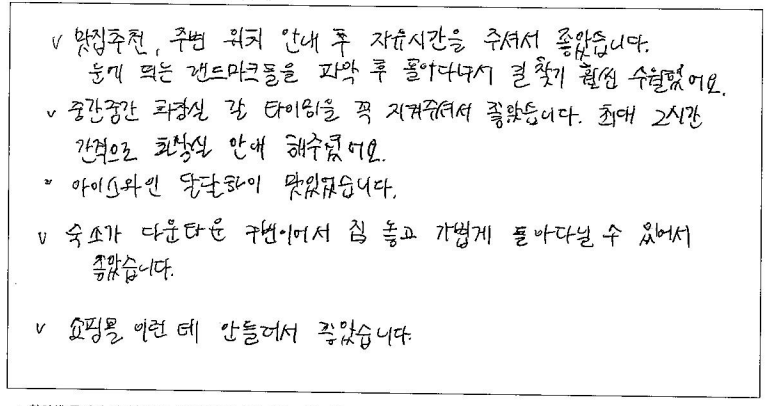 v 맛집추천, 주변 위치 안내 후 자유시간을 주셔서 좋았습니다.
눈에 띄는 랜드마크들을 파악 후 돌아다녀서 길 찾기 훨씬 수월했어요.
v 중간중간 화장실 갈 타이밍을 꼭 지켜주셔서 좋았습니다. 최대 2시간
간격으로 화장실 안내 해주셨어요.
v 아이스와인 달달하이 맛있었습니다.
v 숙소가 다운타운 주변이어서 짐 놓고 가볍게 돌아다닐 수 있어서
좋았습니다.
v 쇼핑몰 이런 데 안들려서 좋았습니다.